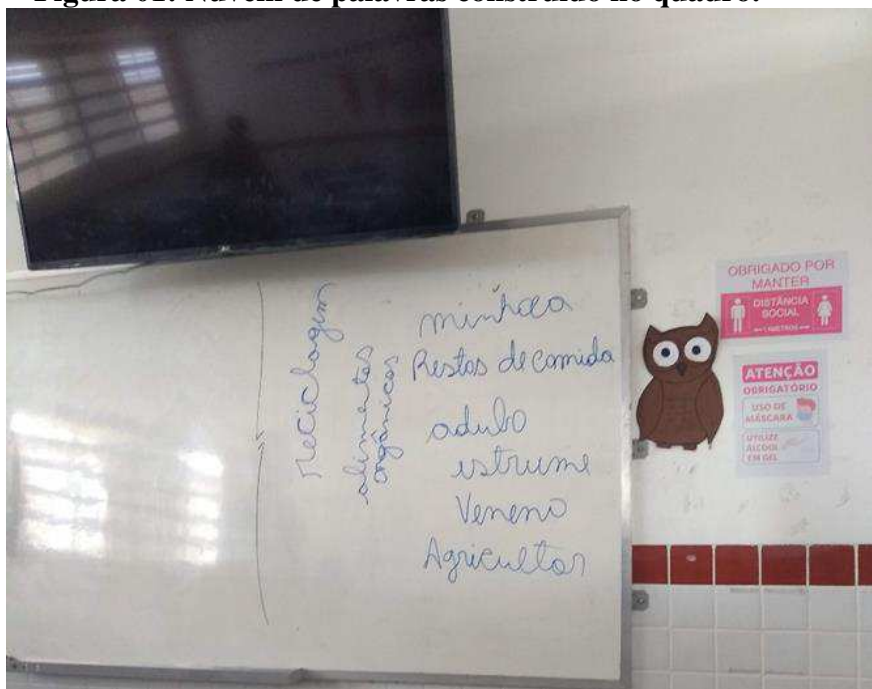 Figura 01: Nuvem de palavras construído no quadro.
Reciclagem
alimentos
orgânicos
minhoca
Restos de comida
adubo
estrume
Veneno
Agricultor
OBRIGADO POR
MANTER
DISTÂNCIA
SOCIAL
ATENÇÃO
OBRIGATÓRIO
USO DE
MÁSCARA
UTILIZE
ÁLCOOL
EM GEL